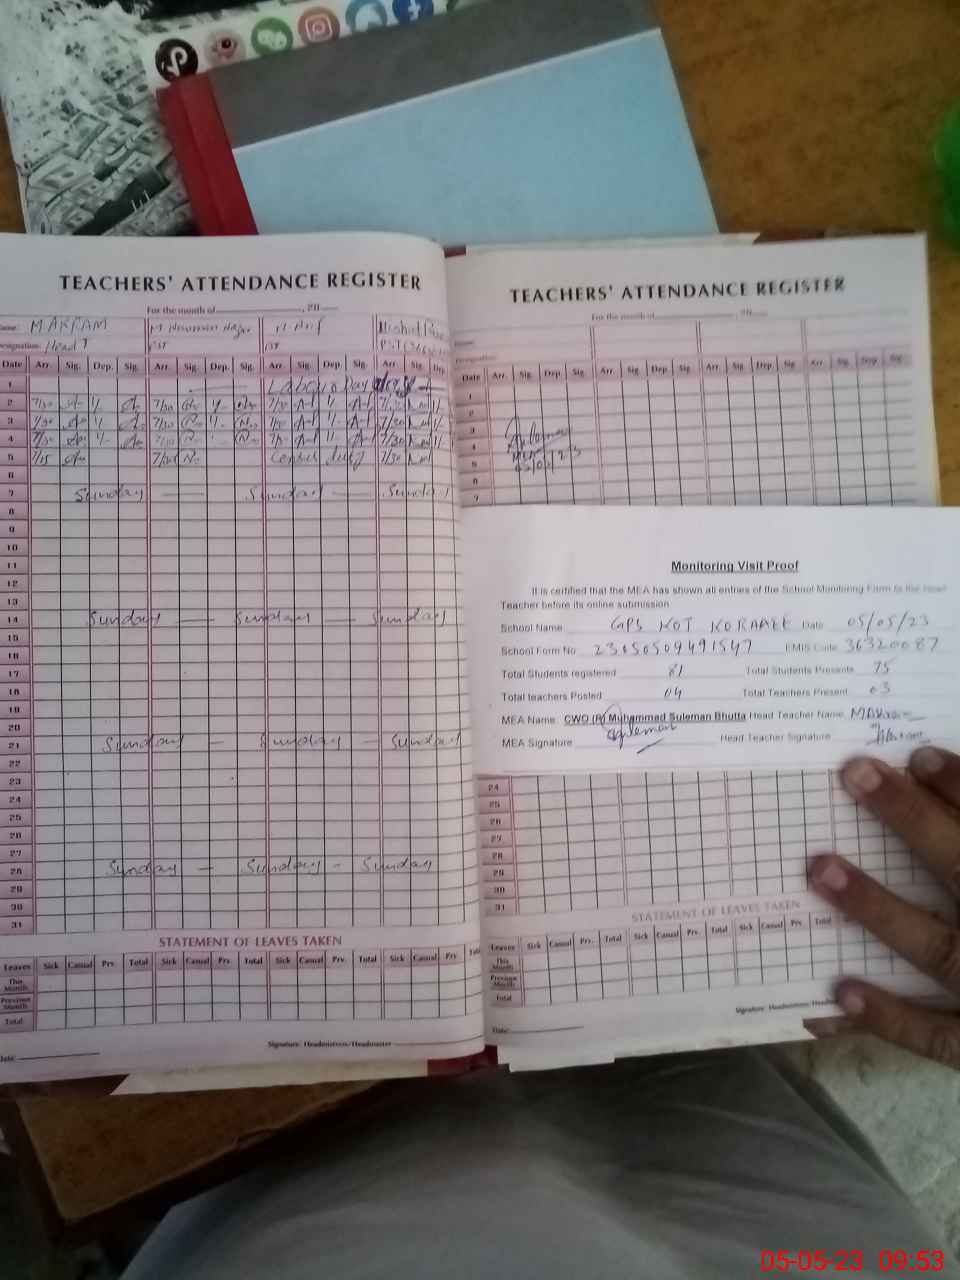 TEACHERS' ATTENDANCE REGISTER
For the month of , 20
Name: MAKRAM M Nouman II Arif Nishat
Designation: Head T PST PST PST
Date Arr. Sig. Dep. Sig. Arr. Sig. Dep. Sig. Arr. Sig. Dep. Sig. Arr. Sig. Dep.
1 Labour Day
2 7/30 7/30 7/30 7/30
3 7/30 7/30 7/30 7/30
4 7/30 7/30 7/30 7/30
5 7/15 Census duty 7/30
6
7 Sunday — Sunday — Sunday
8
9
10
11
12
13
14 Sunday — Sunday — Sunday
15
16
17
18
19
20
21 Sunday — Sunday Sunday
22
23
24
25
26
27
28 Sunday — Sunday - Sunday
29
30
31
STATEMENT OF LEAVES TAKEN
Leaves Sick Casual Prv. Total Sick Casual Prv. Total Sick Casual Prv. Total Sick Casual Prv.
This Month
Previous Month
Total
Signature: Headmistress/Headmaster
Date:
TEACHERS' ATTENDANCE REGISTER
For the month of , 20
Name:
Designation:
Date Arr. Sig. Dep. Sig. Arr. Sig. Dep. Sig. Arr. Sig. Dep. Sig. Arr. Sig. Dep. Sig.
1
2
3
4
5
6
7
Suleman
05/05/23
Monitoring Visit Proof
It is certified that the MEA has shown all entries of the School Monitoring Form to the Head
Teacher before its online submission
School Name GPS KOT KORAALE Date 05/05/23
School Form No 23050509491547 EMIS Code 36320087
Total Students registered 81 Total Students Presents 75
Total teachers Posted 04 Total Teachers Present 03
MEA Name: CWO (R) Muhammad Suleman Bhutta Head Teacher Name MAkram
MEA Signature Suleman Head Teacher Signature
24
25
26
27
28
29
30
31
STATEMENT OF LEAVES TAKEN
Leaves Sick Casual Prv. Total Sick Casual Prv. Total Sick Casual Prv. Total
This Month
Previous Month
Total
Signature: Headmistress/
Date:
05-05-23 09:53